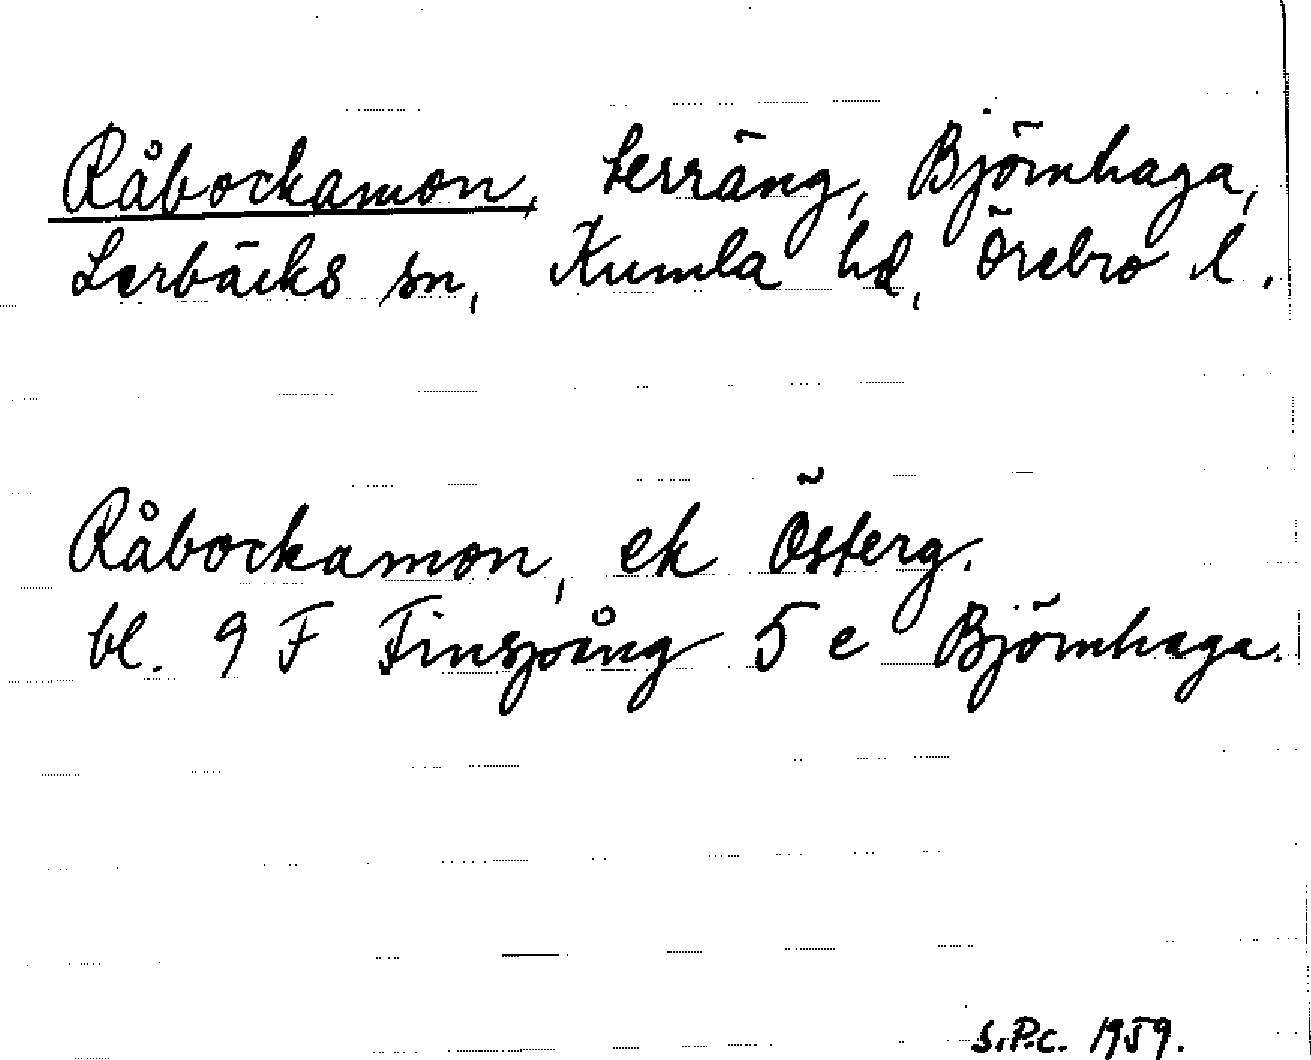 Råbockamon, terräng, Björnhaga,
Lerbäcks sn, Kumla hd, Örebro l.
Råbockamon, ek Österg.
bl. 9 F Finspång 5 e Björnhaga.
S.P-c. 1959.